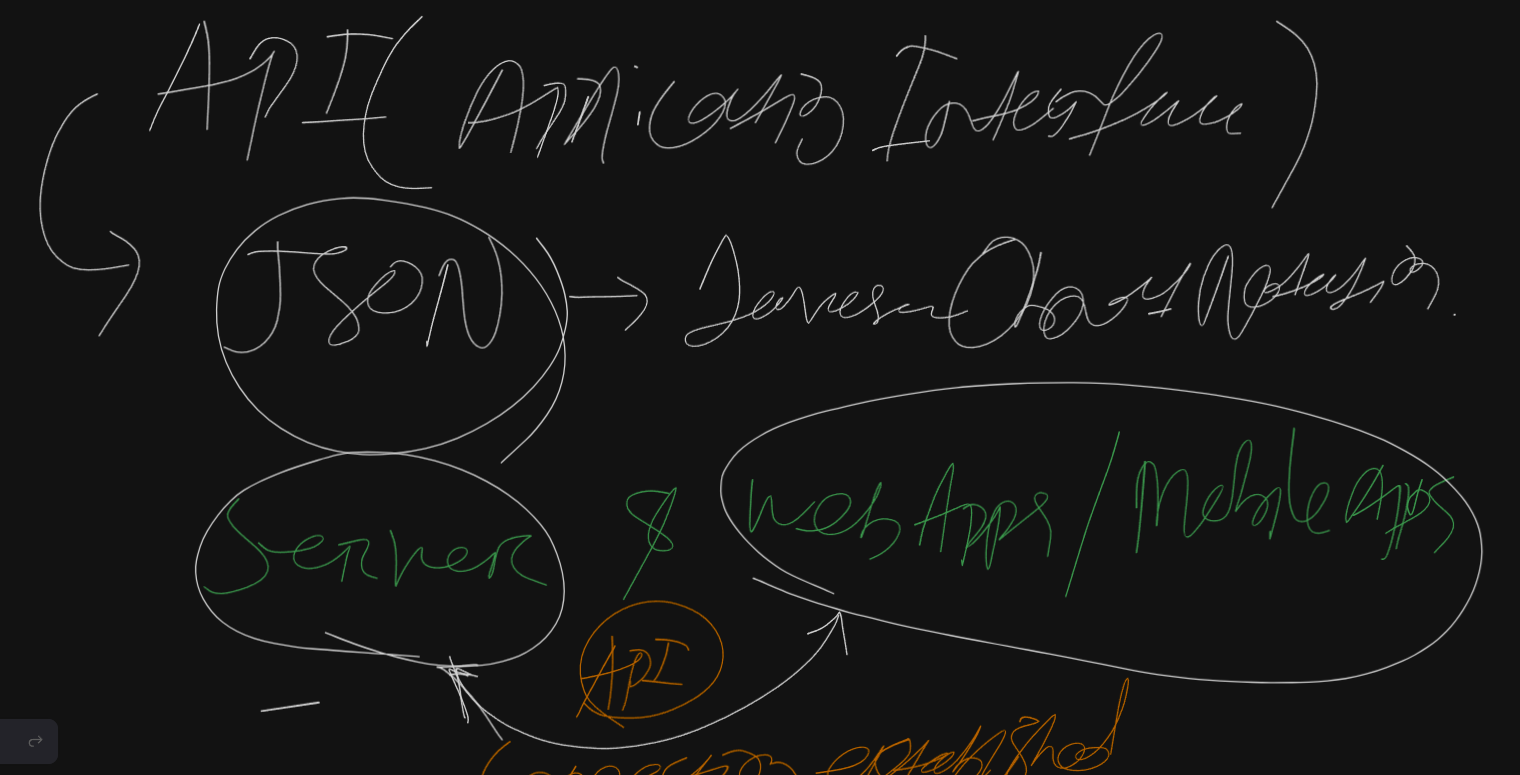 API (Application Interface)
JSON → Javascript Object Notation.
Server & Web Apps / Mobile apps
API
Connection established